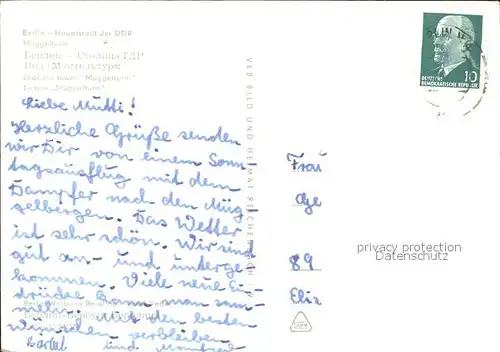 Berlin – Hauptstadt der DDR
Müggelturm
Берлин – Столица ГДР
Look-out tower "Müggelturm"
La tour "Müggelturm"
VEB BILD UND HEIMAT REICHENBACH
DEUTSCHE
DEMOKRATISCHE REPUBLIK
10
Liebe Mutti!
Herzliche Grüße senden
wir Dir von einem Sonn
tagsausflug mit dem
Dampfer nach den Müg
gelbergen. Das Wetter
ist sehr schön. Wir sind
gut an- und unterge
kommen. Viele neue Ein
drücke kann man sam
meln. Mit den besten
Wünschen verbleiben
Bärbel und Manfred
Frau
Ge
89
privacy protection
Datenschutz